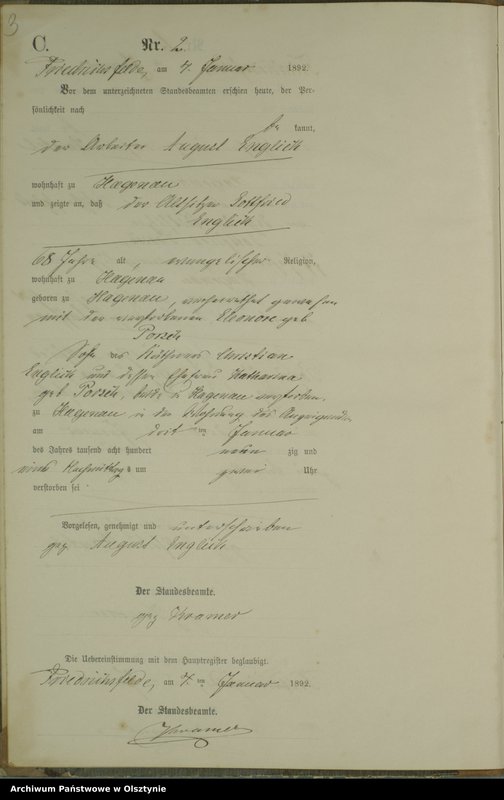 3
C. Nr. 2.
Friedrichsfelde, am 4. Januar 1892.
Vor dem unterzeichneten Standesbeamten erschien heute, der Per-
sönlichkeit nach
be kannt,
der Arbeiter August Englich
wohnhaft zu Hagenau
und zeigte an, daß der Altsitzer Gottfried
Englich
68 Jahre alt, evangelischer Religion,
wohnhaft zu Hagenau
geboren zu Hagenau, verheirathet gewesen
mit der verstorbenen Eleonore geb.
Porsch
Sohn des Christian
Englich und dessen Ehefrau Katharina
geb Porsch, beide in Hagenau verstorben.
zu Hagenau in der Wohnung des Anzeigenden
am drit ten Januar
des Jahres tausend acht hundert neun zig und
Nachmittags um zwei Uhr
verstorben sei
Vorgelesen, genehmigt und unterschrieben
gez August Englich
Der Standesbeamte.
gez Kramer
Die Uebereinstimmung mit dem Hauptregister beglaubigt.
Friedrichsfelde, am 4. ten Januar 1892.
Der Standesbeamte.
Kramer
Archiwum Państwowe w Olsztynie